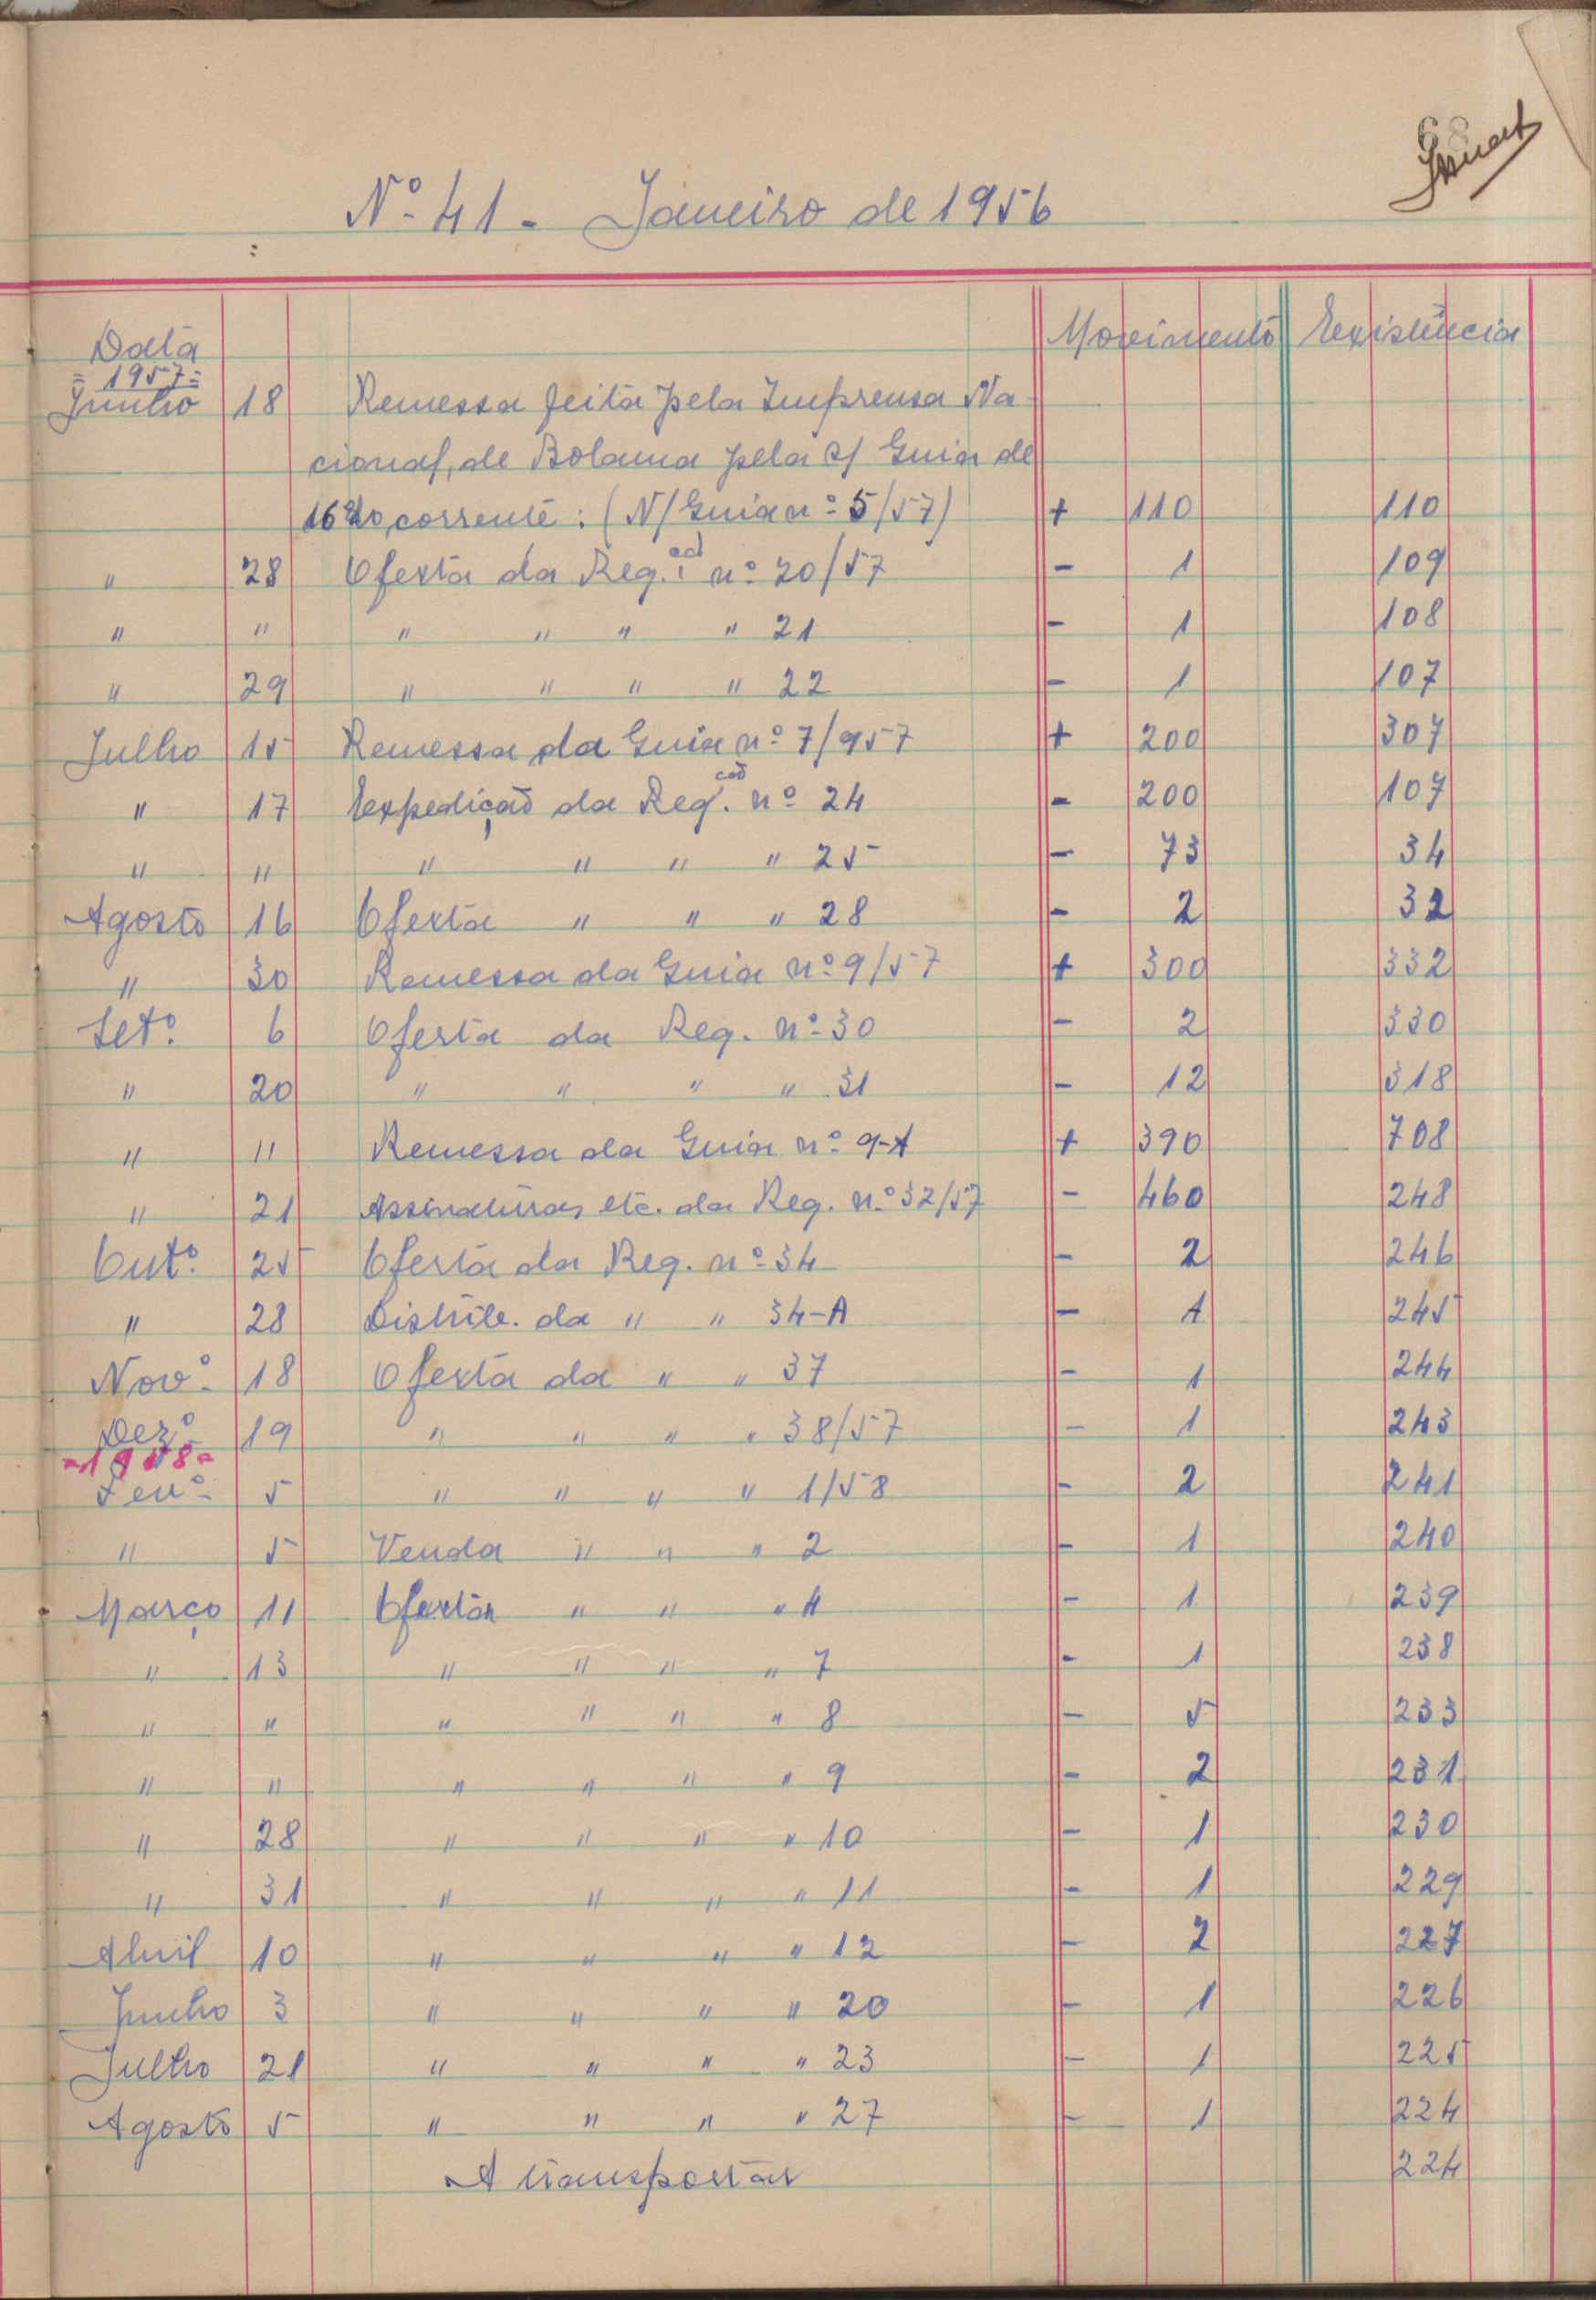 68
Nº 41 - Janeiro de 1956
Data Movimento Existência
= 1957 =
Junho 18 Remessa feita pela Imprensa Na-
cional, de Bolama pela s/ Guia de
16 do corrente: (N/ Guia nº 5/57) + 110 110
" 28 Oferta da Reg. nº 20/57 - 1 109
" " " " " " 21 - 1 108
" 29 " " " " 22 - 1 107
Julho 15 Remessa da Guia nº 7/957 + 200 307
" 17 Expedição da Reg. nº 24 - 200 107
" " " " " " 25 - 73 34
Agosto 16 Oferta " " " 28 - 2 32
" 30 Remessa da Guia nº 9/57 + 300 332
Setº. 6 Oferta da Reg. nº 30 - 2 330
" 20 " " " " 31 - 12 318
" " Remessa da Guia nº 9-A + 390 708
" 21 Assinaturas etc. da Reg. nº 32/57 - 460 248
Outº. 25 Oferta da Reg. nº 34 - 2 246
" 28 Distrib. da " " 34-A - 1 245
Novº. 18 Oferta da " " 37 - 1 244
Dezº. 19 " " " " 38/57 - 1 243
- 1958 -
Fevº. 5 " " " " 1/58 - 2 241
" 5 Venda " " " 2 - 1 240
Março 11 Oferta " " " 4 - 1 239
" 13 " " " " 7 - 1 238
" " " " " " 8 - 5 233
" " " " " " 9 - 2 231
" 28 " " " " 10 - 1 230
" 31 " " " " 11 - 1 229
Abril 10 " " " " 12 - 2 227
Junho 3 " " " " 20 - 1 226
Julho 21 " " " " 23 - 1 225
Agosto 5 " " " " 27 - 1 224
A transportar 224